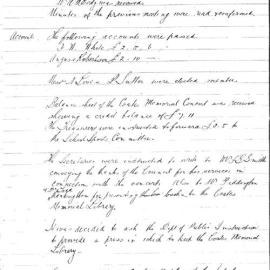 Minutes of the previous meeting were read & confirmed.
Accounts The following accounts were passed.
F. W. White £2. 0. 6
Robertson £2. 10. —
were elected members.
Balance sheet of the Coates Memorial Concert was received
showing a credit balance of £7. 11
The Treasurer were instructed to forward £0. 5 to
the School Sports Committee.
The Secretaries were instructed to write to Mr Smith
conveying the thanks of the Council for his services in
connection with the concert. Also to Mr
for providing the book to the Coates
Memorial Library.
It was decided to ask the Dept of Public Instruction
to provide a press in which to keep the Coates Memorial
Library.